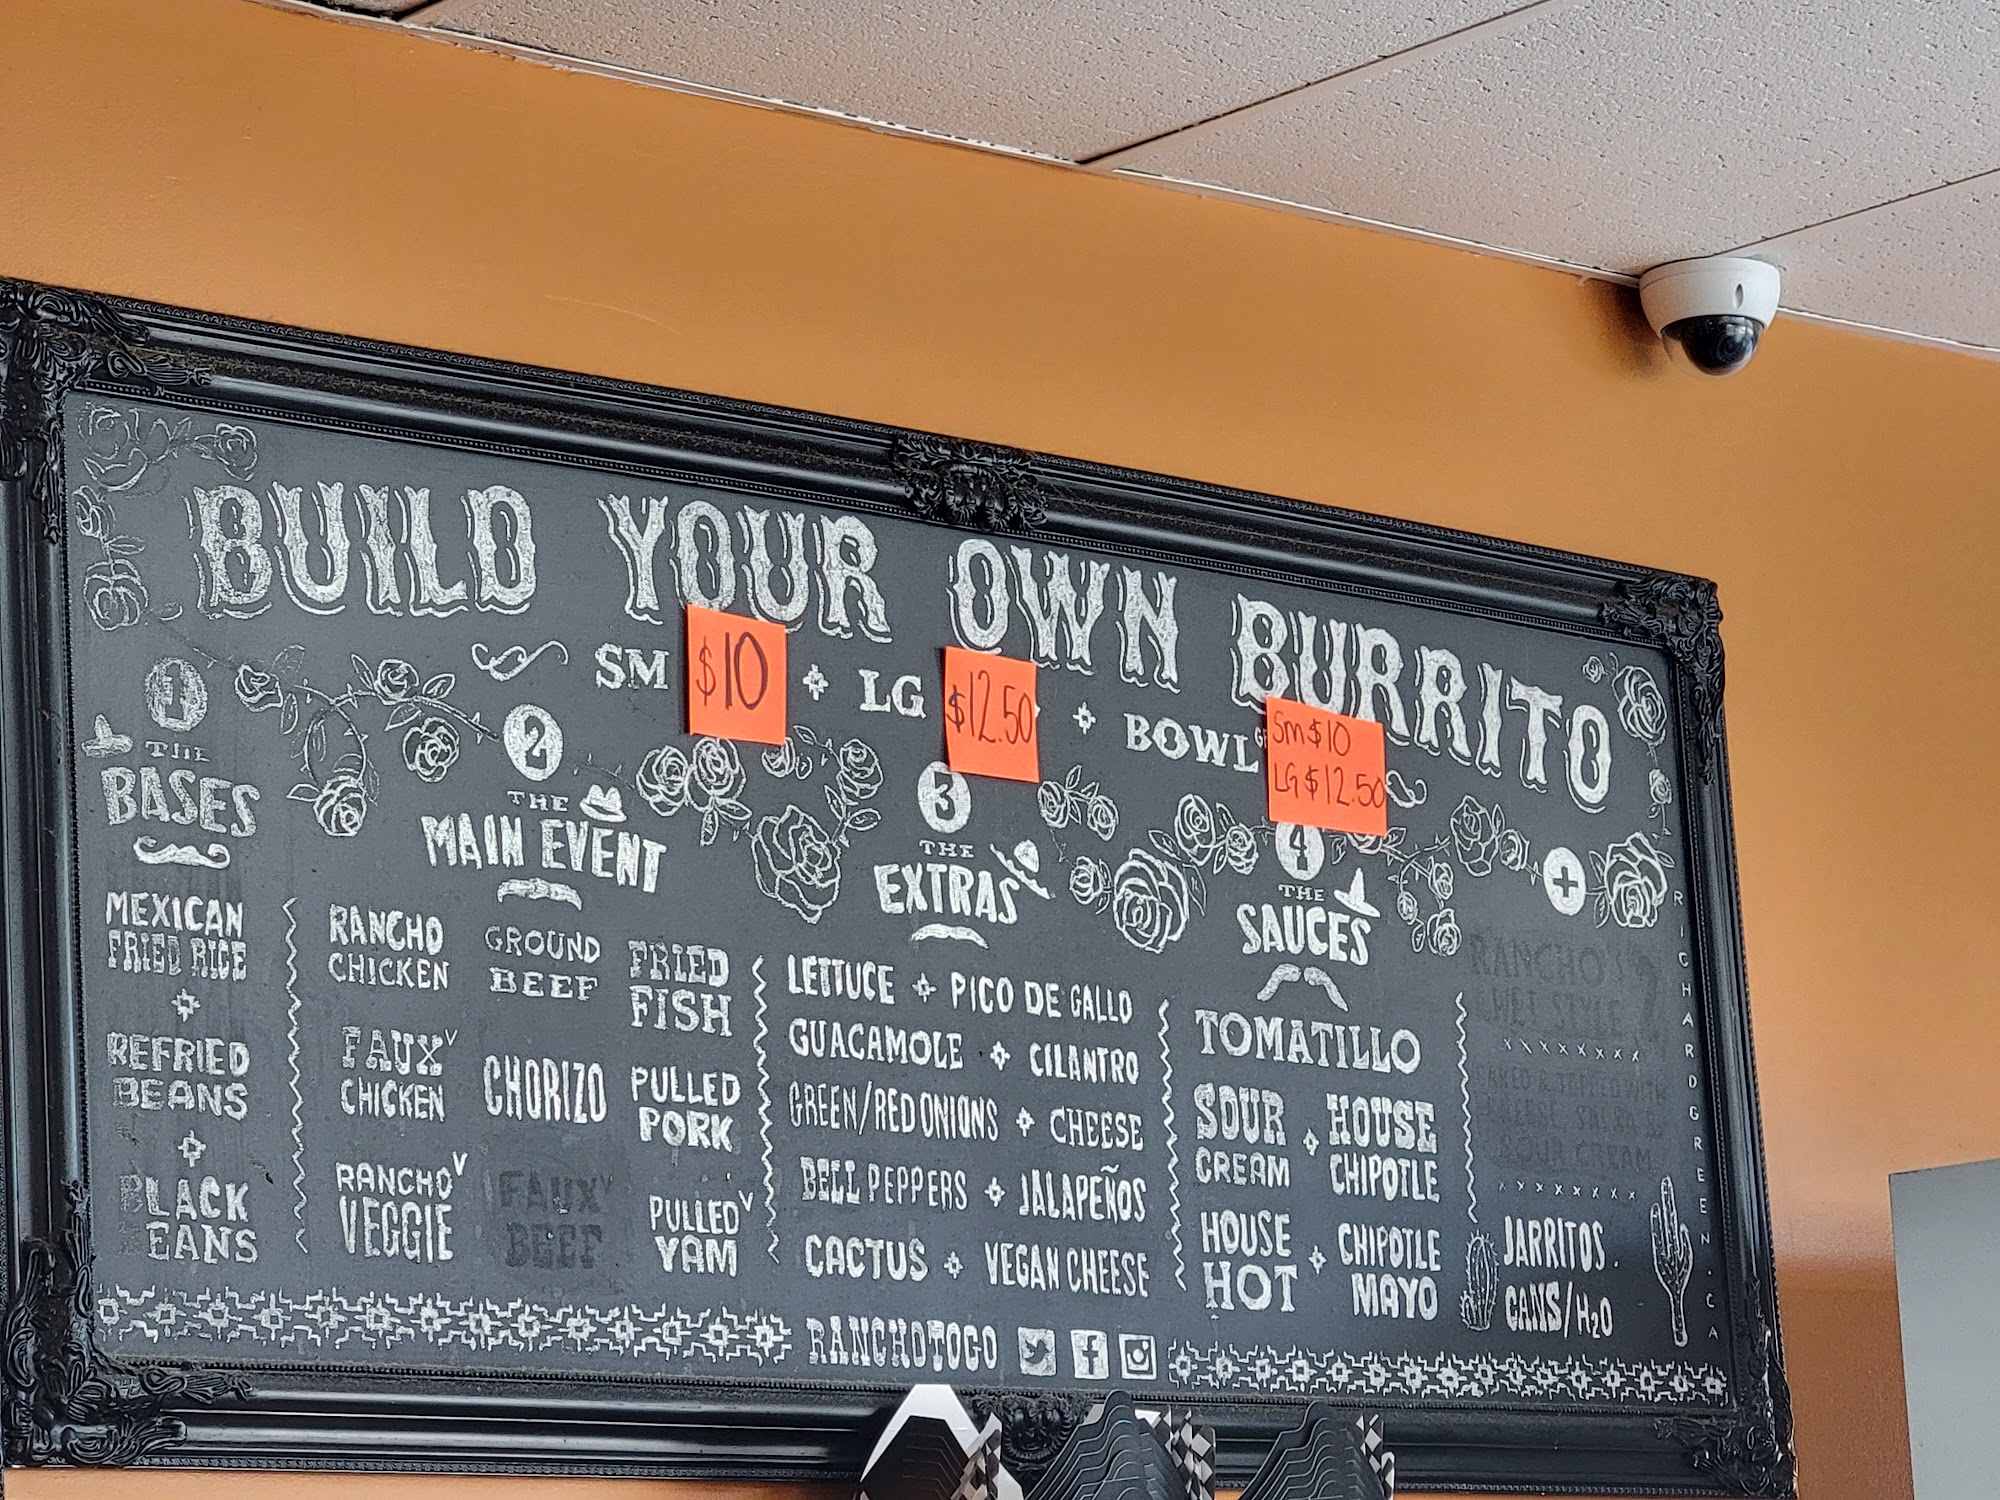 BUILD YOUR OWN BURRITO
SM $10 + LG $12.50 + BOWL
Sm $10
LG $12.50
1
THE
BASES
MEXICAN
FRIED RICE
+
REFRIED
BEANS
+
BLACK
BEANS
2
THE
MAIN EVENT
RANCHO
CHICKEN
FAUX V
CHICKEN
RANCHO V
VEGGIE
GROUND
BEEF
CHORIZO
FAUX V
BEEF
FRIED
FISH
PULLED
PORK
PULLED V
YAM
3
THE
EXTRAS
LETTUCE + PICO DE GALLO
GUACAMOLE + CILANTRO
GREEN/RED ONIONS + CHEESE
BELL PEPPERS + JALAPEÑOS
CACTUS + VEGAN CHEESE
4
THE
SAUCES
TOMATILLO
SOUR
CREAM
+
HOUSE
CHIPOTLE
HOUSE
HOT
+
CHIPOTLE
MAYO
+
RANCHO'S
WET STYLE 2
x x x x x x x x
BAKED & TOPPED WITH
CHEESE, SALSA &
SOUR CREAM
x x x x x x x x
JARRITOS
CANS/H2O
RANCHOTOGO
RICHARDGREEN.CA